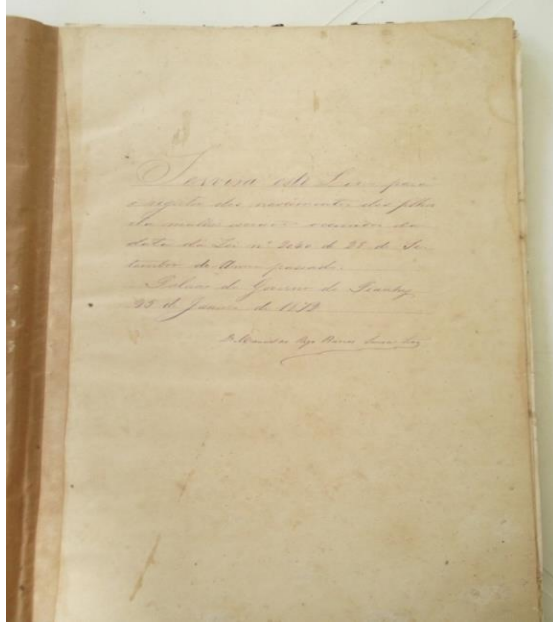 Servirá este Livro para
o registro dos nascimentos dos filhos
da mulher escrava occorridos da
data da Lei nº 2040 de 28 de Se-
tembro do Anno passado.
Palacio do Governo do Piauhy
25 de Janeiro de 1872